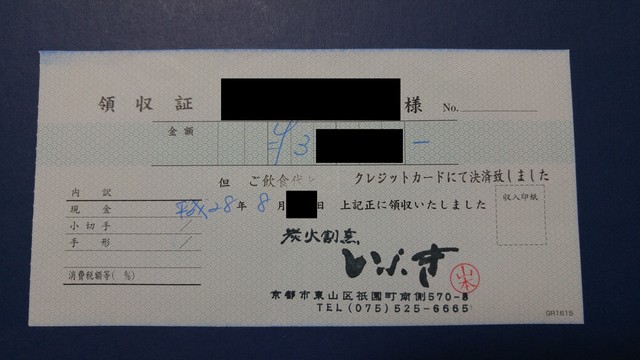 領収証 様 No.
金額 ¥3 -
但 ご飲食代と クレジットカードにて決済致しました
内訳
現金 平成28年 8月 日 上記正に領収いたしました
収入印紙
小切手 /
手形 /
消費税額等( %)
炭火割烹
いふき
山本
京都市東山区祇園町南側570-8
TEL(075)525-6665
GR1615